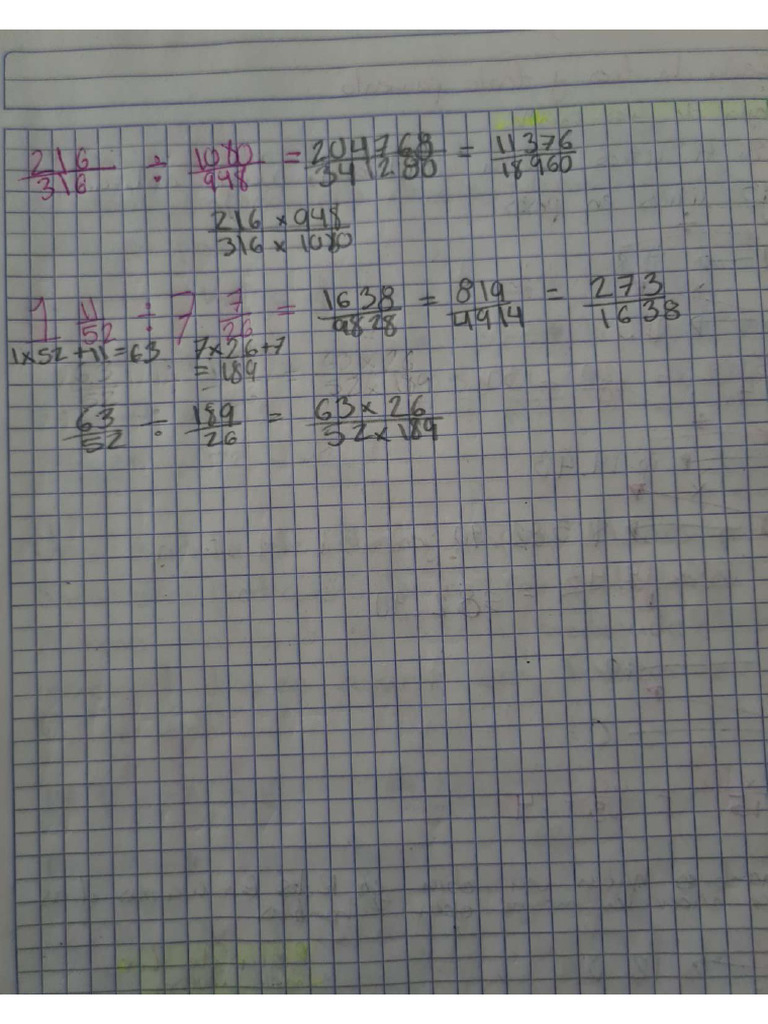 216/316 ÷ 1080/948 = 204768/341280 = 11376/18960
216 × 948/316 × 1080
1 11/52 ÷ 7 7/26 = 1638/9828 = 819/4914 = 273/1638
1×52+11=63 7×26+7
= 189
63/52 ÷ 189/26 = 63 × 26/52 × 189